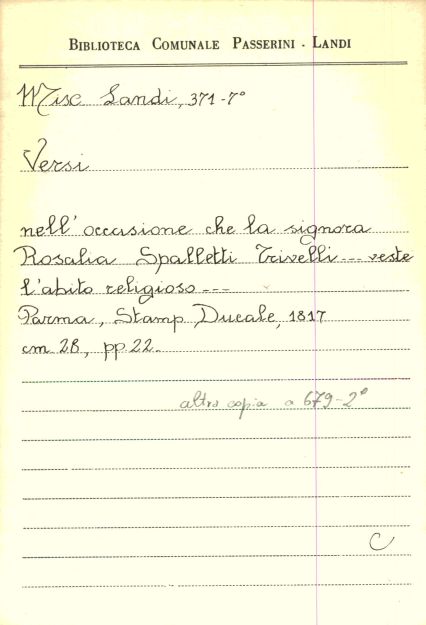 BIBLIOTECA COMUNALE PASSERINI - LANDI
Misc Landi, 371-7°
Versi
nell'occasione che la signora
Rosalia Spalletti Trivelli --- veste
l'abito religioso ---
Parma, Stamp Ducale, 1817
cm 28, pp 22.
altra copia a 679-2°
C